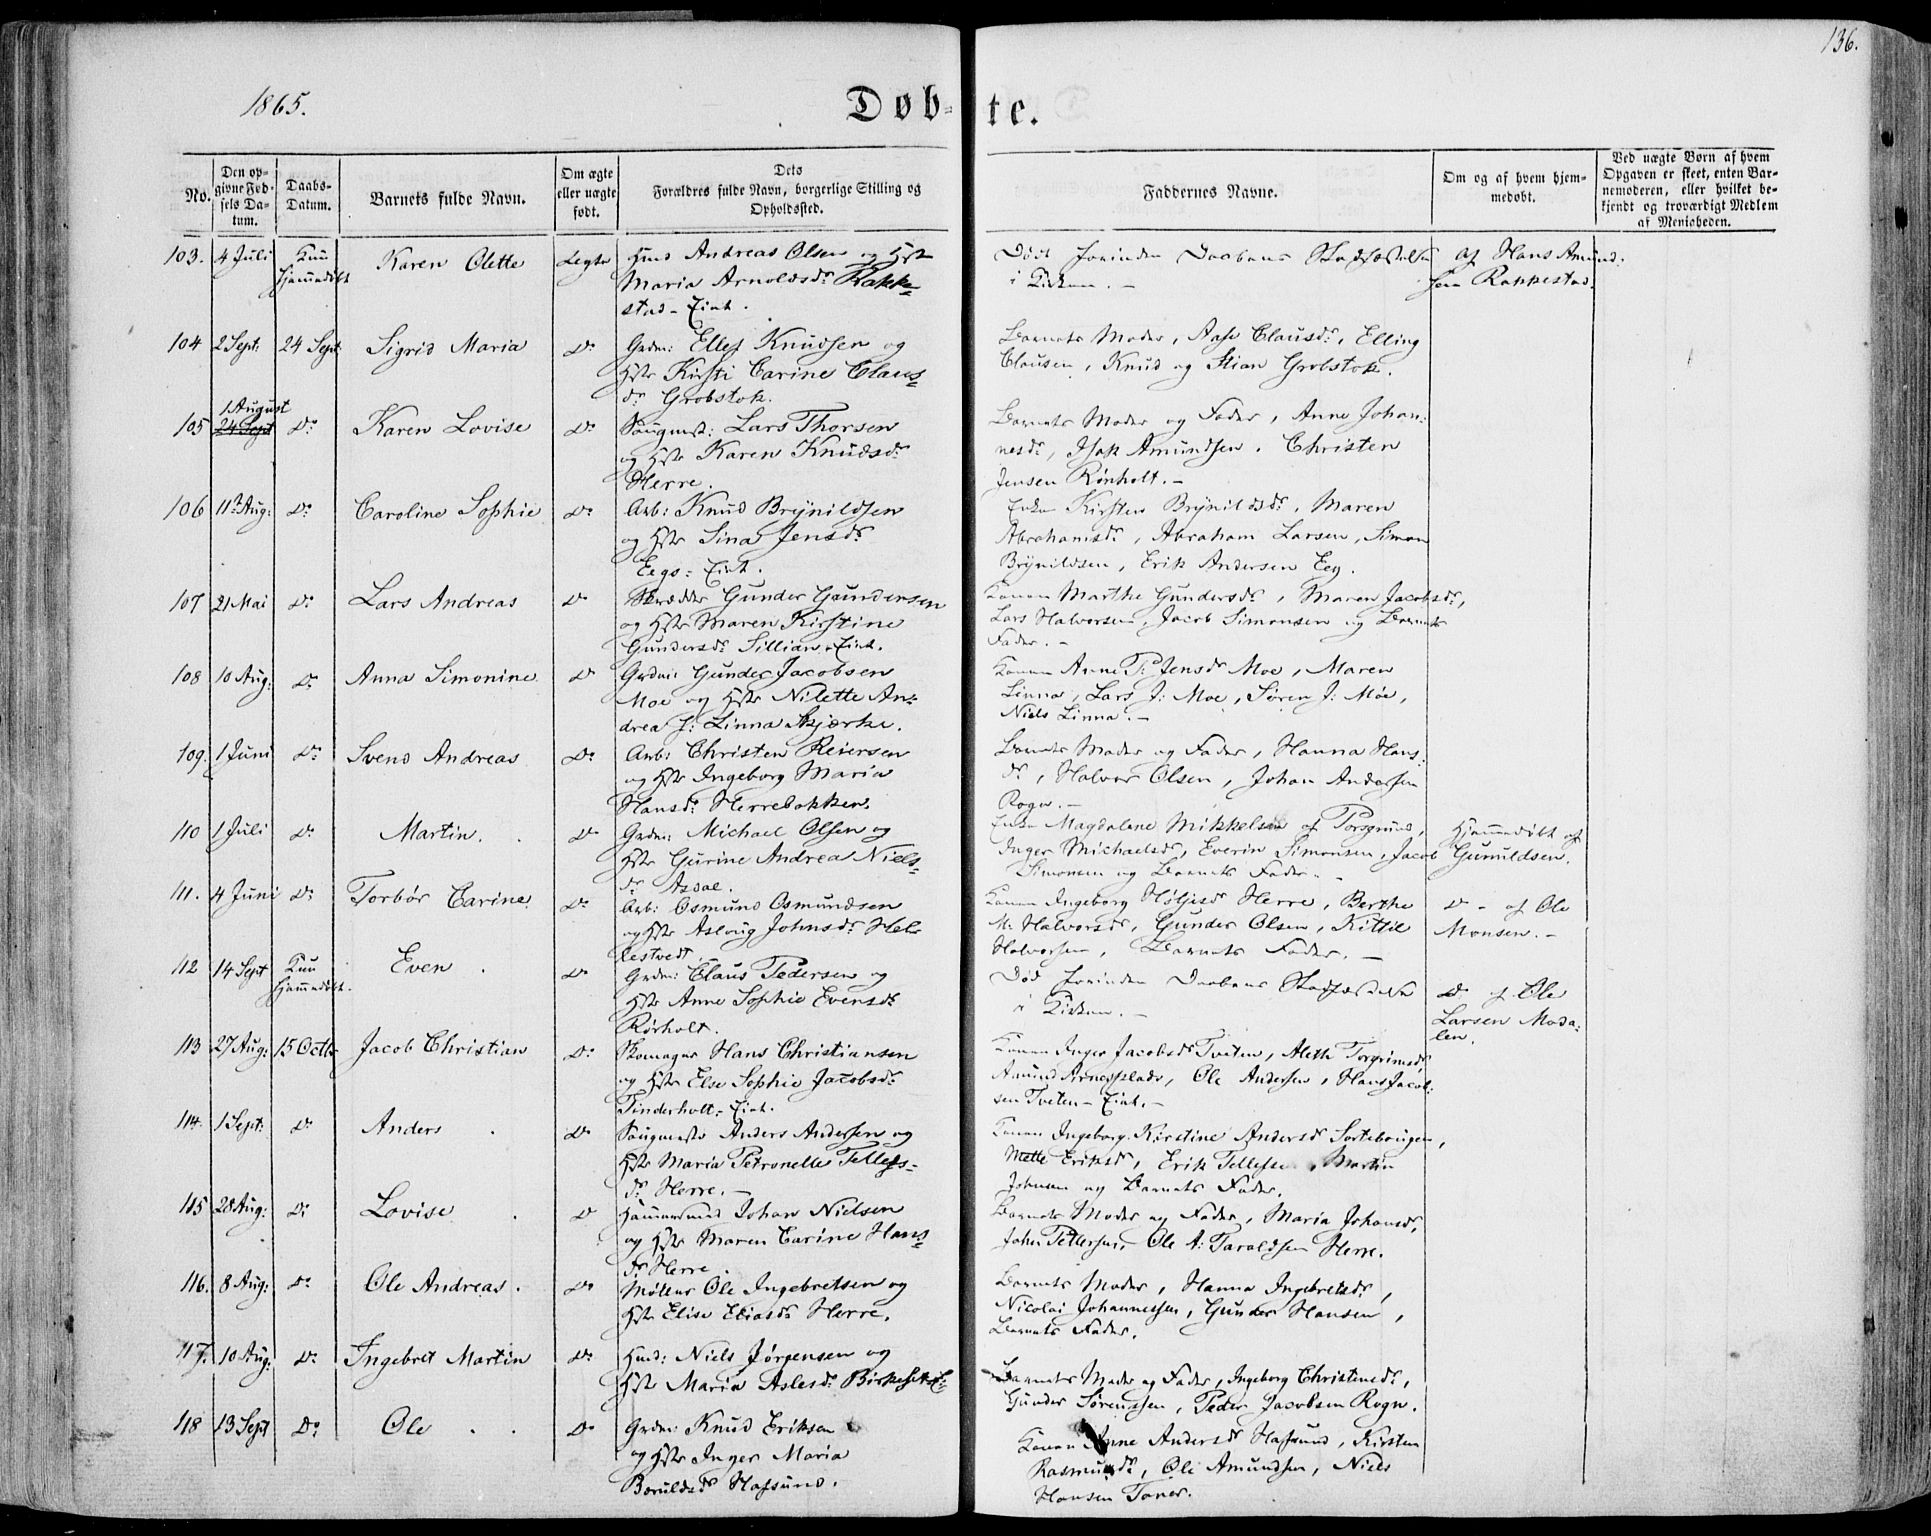 136.
1865.
Døb-te.
No.
Den opgivne Fødsels Datum.
Daabs-Datum.
Barnets fulde Navn.
Om ægte eller uægte født.
Dets Forældres fulde Navn, borgerlige Stilling og Opholdssted.
Faddernes Navne.
Om og af hvem hjemmedøbt.
Ved uægte Børn af hvem Opgaven er skeet, enten Barnemoderen, eller hvilket bekjendt og troværdigt Medlem af Menigheden.
103. 4 Juli Kun hjemmedøbt Karen Olette Ægte
Hmd Andreas Olsen og Hst
Maria Arnoldsdr Rakke-
stad - Eiet.
Død forinden Daabens Stadfæstelse
i Kirken. -
af Hans Amund-
sen Rakkestad.
104 2 Sept: 24 Sept Sigrid Maria Do
Grdm: Ellef Knudsen og
Hstr Kirsti Carine Claus-
dr Grobstok.
Barnets Moder, Aase Clausdr, Elling
Clausen, Knud og Stian Grobstok.
105 1 August 24 Sept Do Karen Lovise Do
Saugmst: Lars Thorsen
og Hstr Karen Knudsdr
Herre.
Barnets Moder og Fader, Anne Johan-
nesdr, Isak Amundsen, Christen
Jensen Rønholt. -
106 11 Aug: Do Caroline Sophie Do
Arb: Knud Brynildsen
og Hstr Sina Jensdr
Eegs - Eiet.
Enke Kirsten Brynildsdr, Maren
Abrahamsdr, Abraham Larsen, Simon
Brynildsen, Erik Andersen Eeg.
107 21 Mai Do Lars Andreas Do
Skrædder Gunder Gundersen
og Hstr Maren Kirstine
Gundersdr Sillian - Eiet.
Konen Marthe Gundersdr, Maren Jacobsdr,
Lars Halvorsen, Jacob Simonsen og Barnets
Fader. -
108 10 Aug: Do Anna Simonine Do
Grdm: Gunder Jacobsen
Moe og Hstr Nilette An-
drea J: Linna Skjerke.
Konen Anne T: Jensdr Moe, Maren
Linna, Lars J: Moe, Søren J: Moe,
Niels Linna. -
109. 1 Juni Do Svend Andreas Do
Arb: Christen Reiersen
og Hstr Ingeborg Maria
Hansdr Herrebakken.
Barnets Moder og Fader, Hanna Hans-
dr, Halvor Olsen, Johan Andersen
Rogn. -
110 1 Juli Do Martin. Do
Grdm: Michael Olsen og
Hstr Gurine Andrea Niels-
dr Asdal.
Enke Magdalene Mikkelsen af Porsgrund,
Inger Michaelsdr, Everin Simonsen, Jacob
Simonsen og Barnets Fader. -
Hjemmedøbt af
Gunuldsen.
111. 4 Juni Do Torbør Carine Do
Arb: Osmund Osmundsen
og Hstr Aslaug Johnsdr Hel-
lestvedt.
Konen Ingeborg Høljesdr Herre, Berthe
M: Halvorsdr, Gunder Olsen, Kittil
Halvorsen, Barnets Fader. -
Do - af Ole
Monsen. -
112 14 Sept Kun hjemmedøbt. Even. Do
Grdm: Claus Pedersen og
Hstr Anne Sophie Evensdr
Rørholt.
Død forinden Daabens Stadfæstelse
i Kirken. -
Do af Ole
Larsen Moda-
len.
113 27 Aug: 15 Octbr Jacob Christian Do
Skomager Hans Christiansen
og Hstr Else Sophie Jacobsdr
Tinderholt - Eiet.
Konen Inger Jacobsdr Tveten, Aleth Torgrimsdr,
Amund Arnesplads, Ole Andersen, Hans Jacob-
sen Tveten - Eiet. -
114. 1 Sept: Do Anders. Do
Saugmester Anders Andersen og
Hstr Maria Petronelle Tellefs-
dr Herre. -
Konen Ingeborg Kirstine Andersdr Sortebougen,
Mette Eriksdr, Erik Tellefsen, Martin
Johnsen og Barnets Fader.
115 28 Aug: Do Lovise. Do
Hammersmed Johan Nielsen
og Hstr Maren Carine Hans-
dr Herre.
Barnets Moder og Fader, Maria Johansdr,
John Pettersen, Ole A: Taraldsen Herre.
116. 8 Aug: Do Ole Andreas. Do
Møller Ole Ingebretsen og
Hstr Elise Eliasdr Herre.
Barnets Moder, Hanna Ingebretsdr,
Nicolai Johannessen, Gunder Hansen,
Barnets Fader.
117. 10 Aug: Do Ingebret Martin Do
Hmd: Niels Jørgensen og
Hstr Maria Aslesdr Birkesets E:
Barnets Moder og Fader, Ingeborg Christensdr,
Gunder Sørenssen, Peder Jacobsen Rogn.
118 13 Sept Do Ole. Do
Grdm: Knud Eriksen
og Hstr Inger Maria
Boruldsdr Hafsund.
Konen Anne Andersdr Hafsund, Kirsten
Rasmusdr, Ole Amundsen, Niels
Hansen Toner.